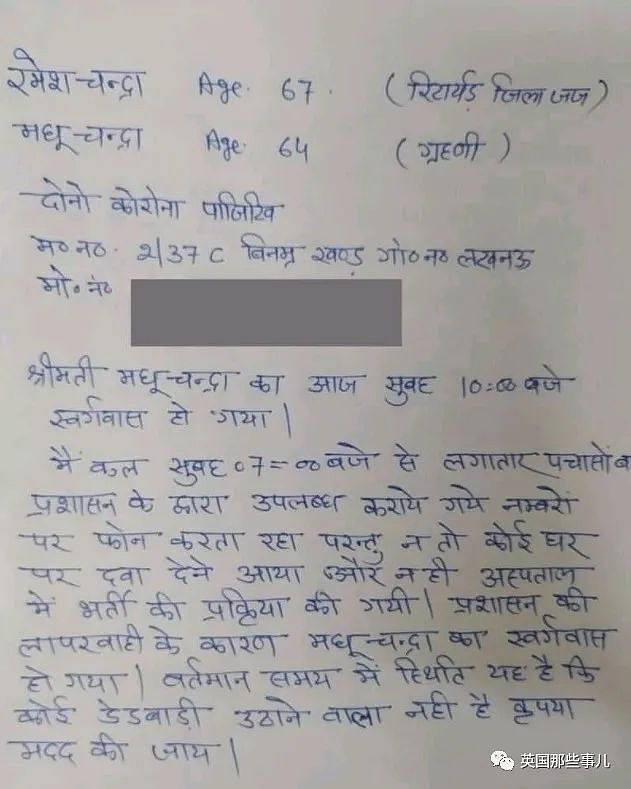 रमेश चन्द्रा Age. 67. (रिटायर्ड जिला जज)
मधू चन्द्रा Age. 64 (ग्रहणी)
दोनो कोरोना पाजिटिव
म० न०. 2/37 C विनम्र खण्ड़ गो० न० लखनऊ
मो. नं०
श्रीमती मधू चन्द्रा का आज सुवह 10=00 बजे
स्वर्गवास हो गया।
मैं कल सुवह 07=00 बजे से लगातार पचासों ब
प्रशासन के द्वारा उपलब्ध कराये गये नम्बरों
पर फोन करता रहा परन्तु न तो कोई घर
पर दवा देने आया और न ही अस्पताल
में भर्ती की प्रक्रिया की गयी। प्रशासन की
लापरवाही के कारण मधू चन्द्रा का स्वर्गवास
हो गया। वर्तमान समय में स्थिति यह है कि
कोई डेडबाड़ी उठाने वाला नही है कृपया
मदद की जाय।
英国那些事儿